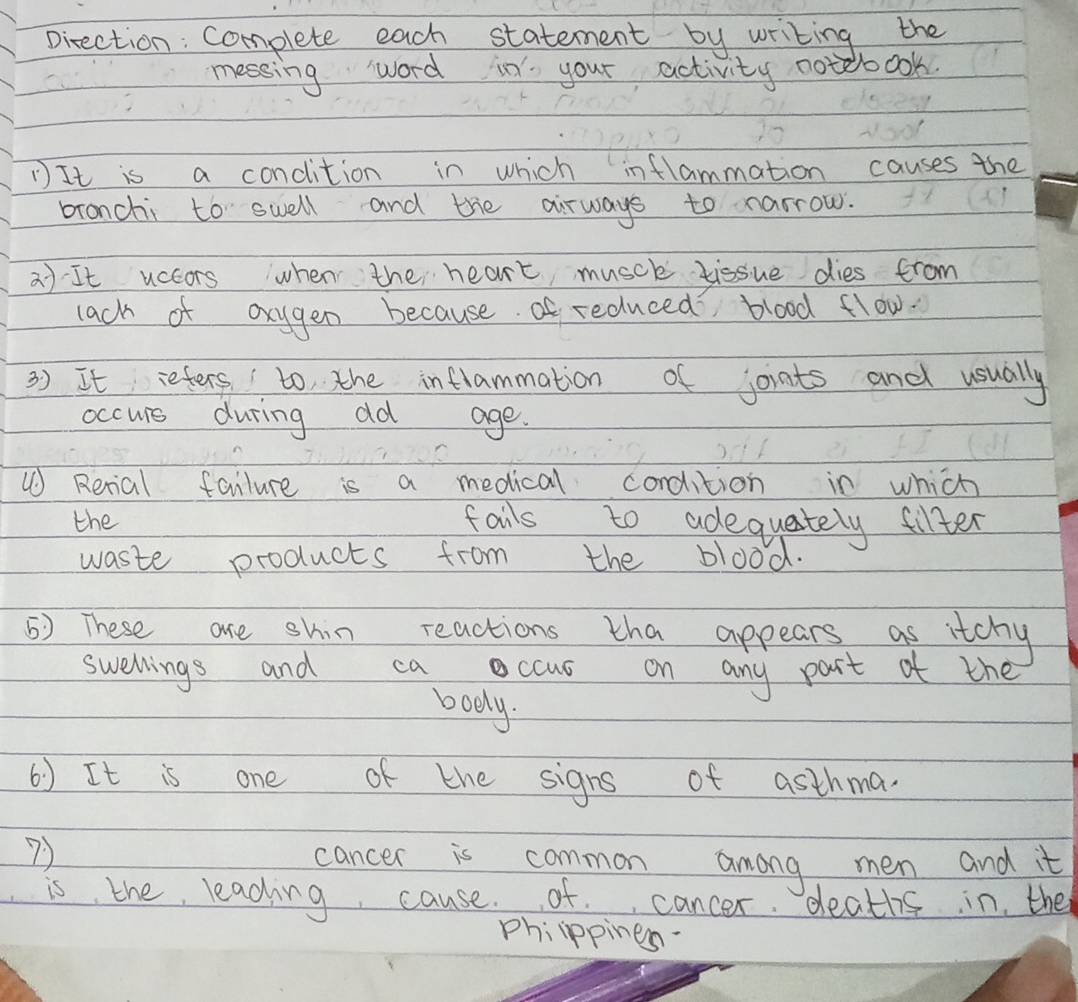 Direction: Complete each statement by writing the
messing word in your activity notebook.
1.) It is a condition in which inflammation causes the
bronchi to swell and the airways to narrow.
2.) It uccors when the heart muscle tissue dies from
lach of oxygen because of reduced blood flow.
3.) It refers to the inflammation of joints and usually
occurs during old age.
4.) Renial failure is a medical condition in which
the fails to adequately filter
waste products from the blood.
5.) These are skin reactions tha appears as itchy
swellings and ca occus on any part of the
body.
6.) It is one of the signs of asthma.
7.) cancer is common among men and it
is the leading cause of cancer deaths in the
Phiippinen.